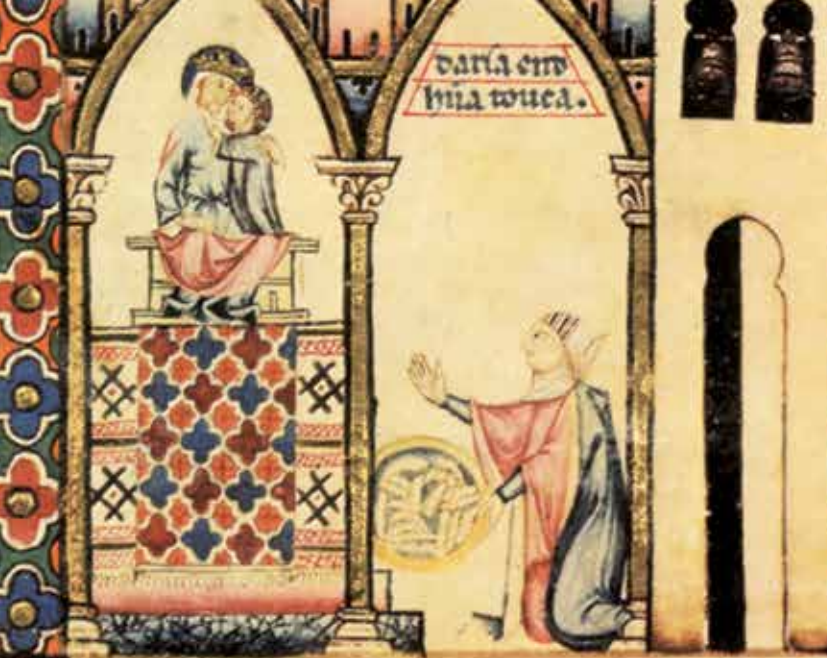 daria end
hũa touca.